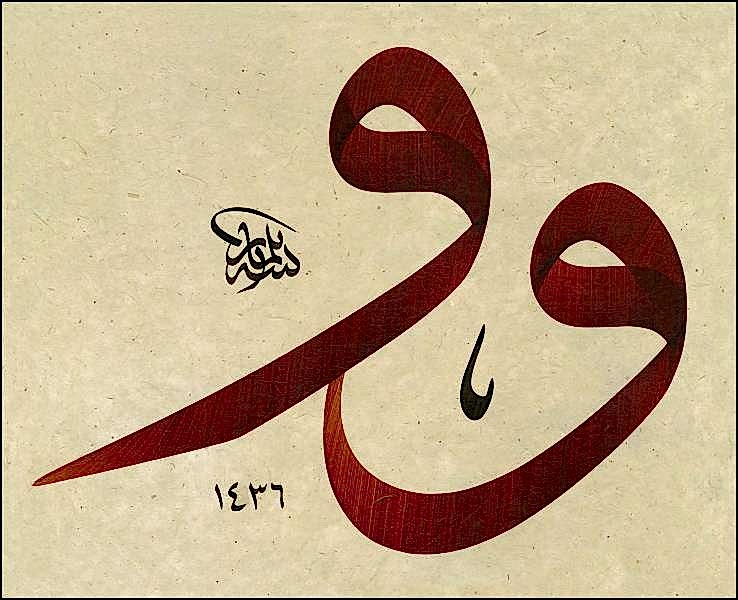 و و
١٤٣٦